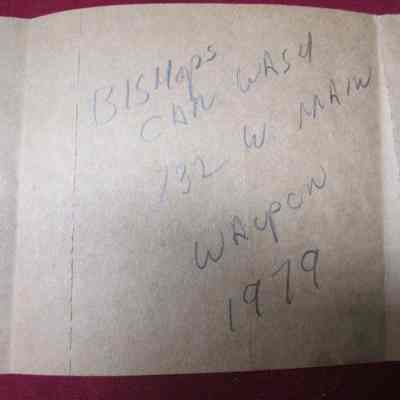 BISHOPS
CAR WASH
132 W. MAIN
WAUPUN
1979